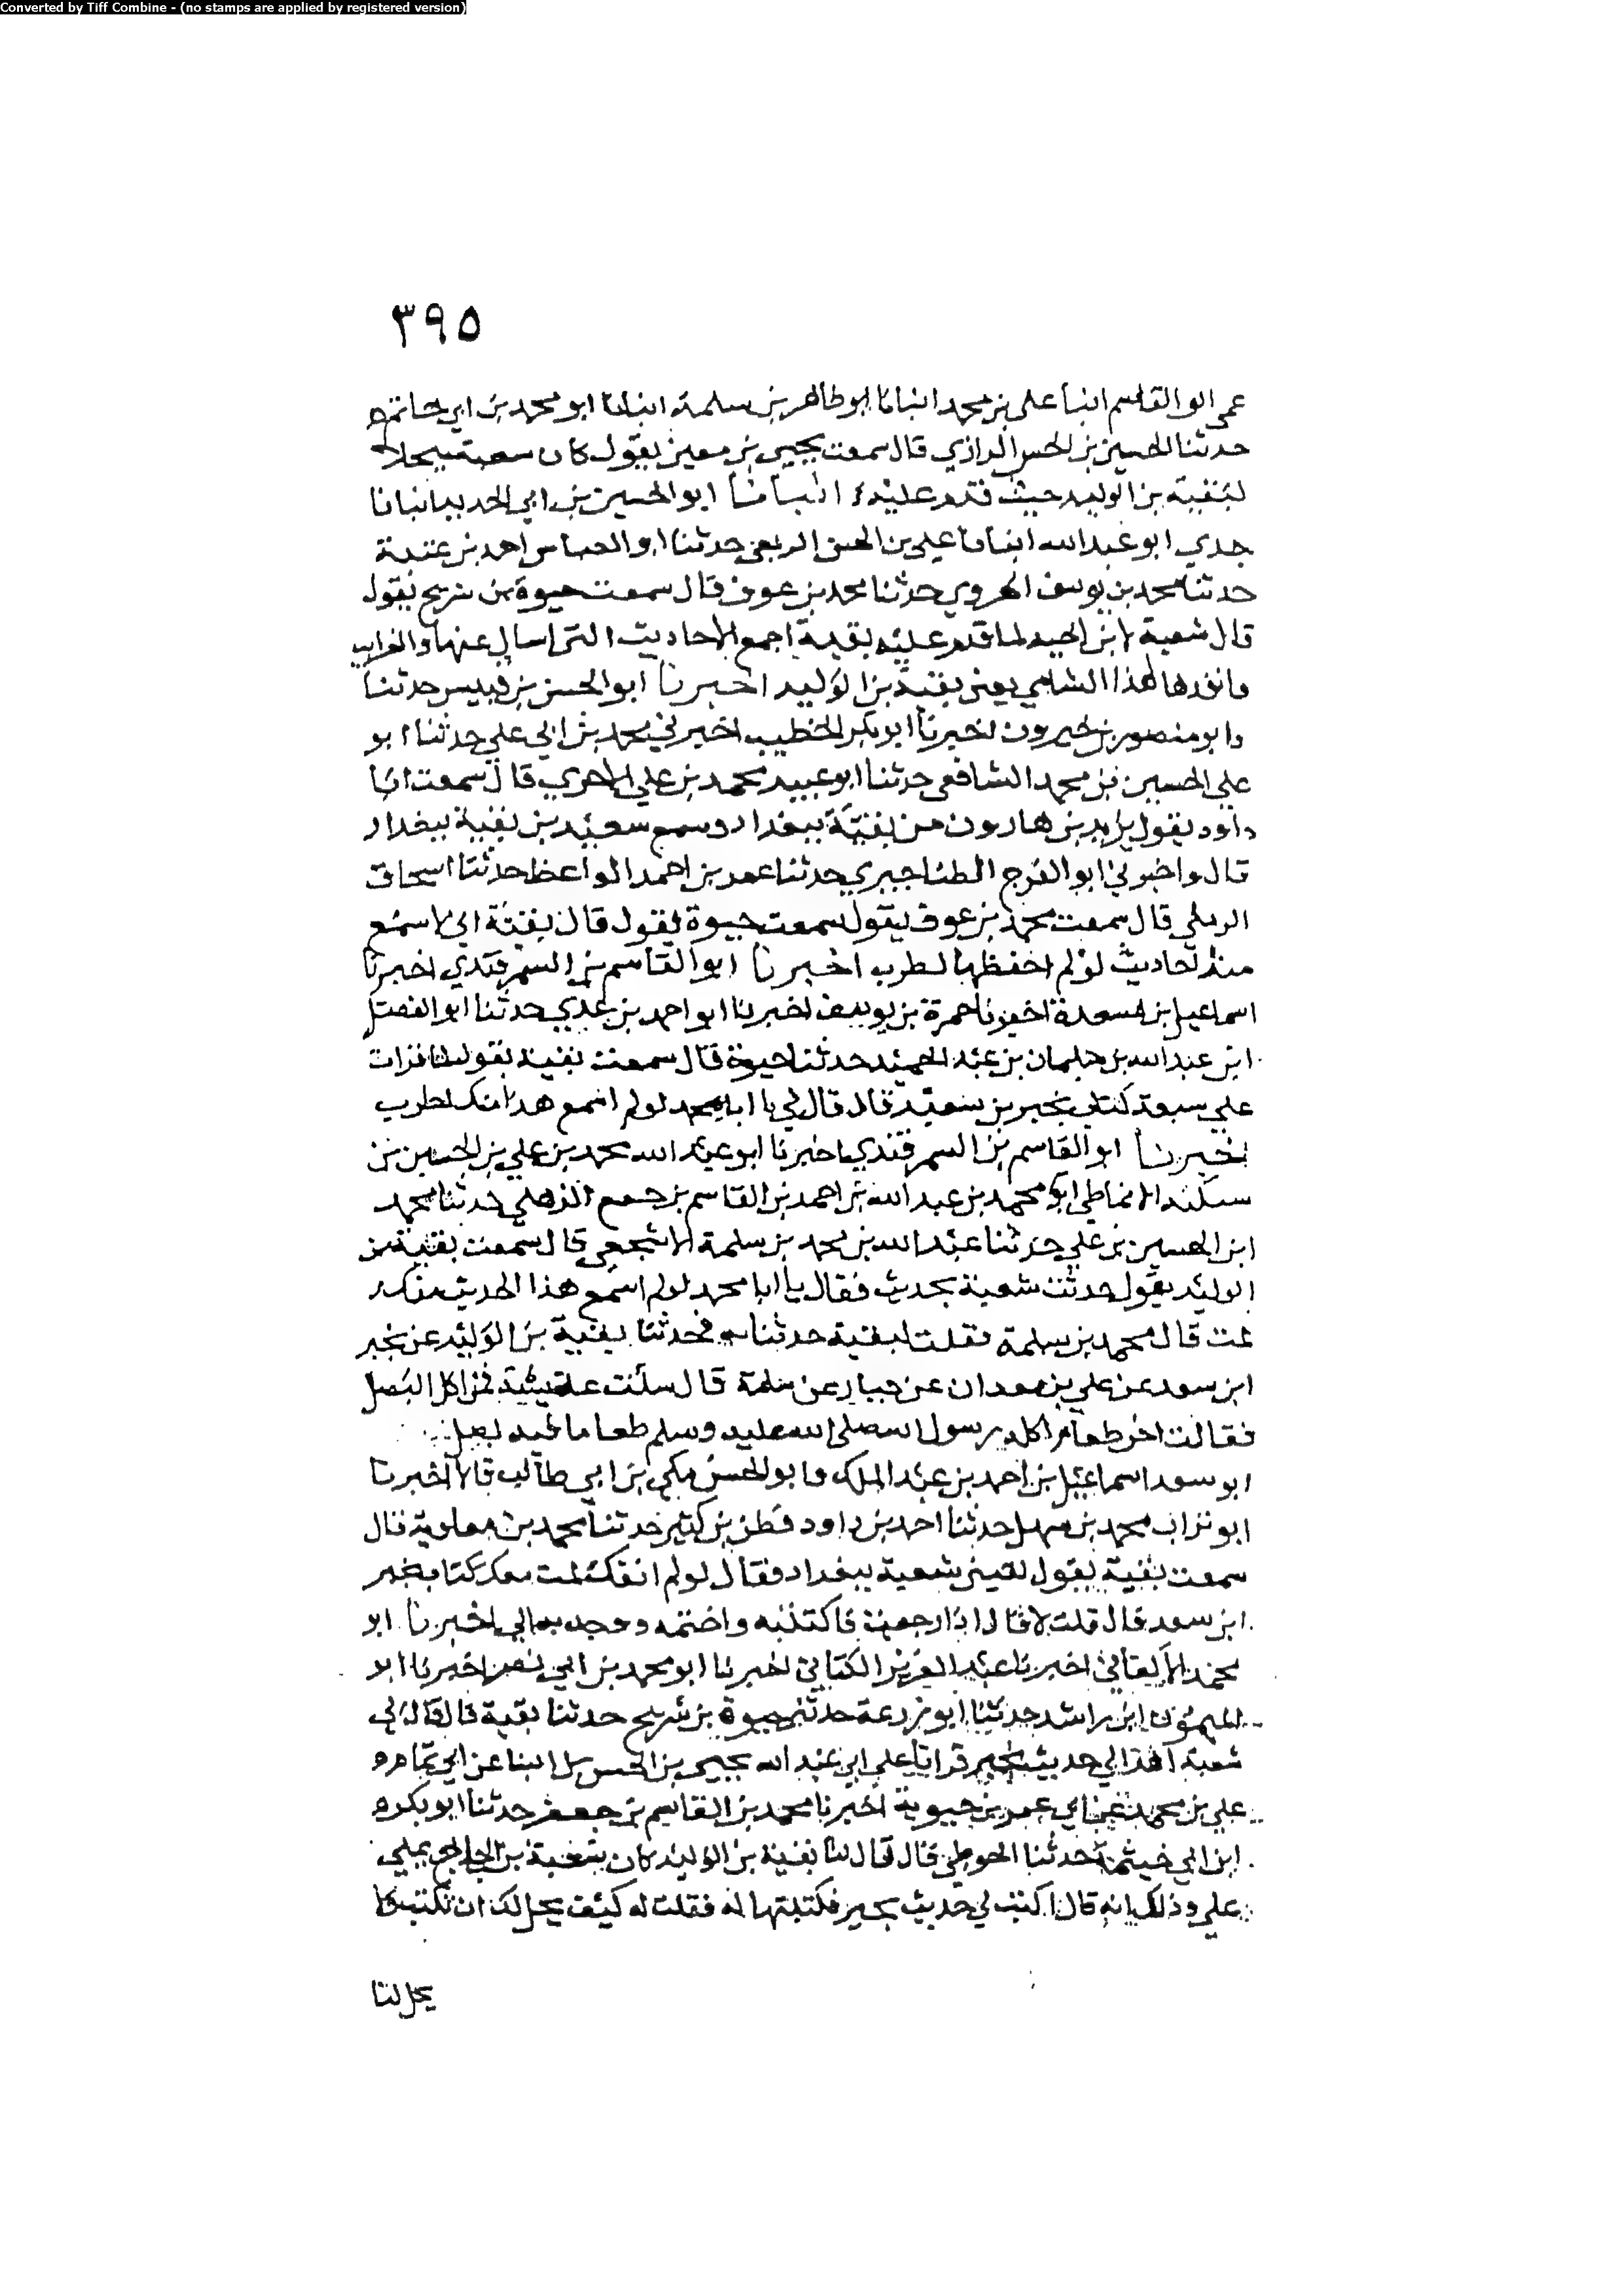 Converted by Tiff Combine - (no stamps are applied by registered version)
٣٩٥
عمى ابو القاسم انبا على بن محمد انبانا ابو طاهر بن سلمة انبانا ابو محمد بن ابي حاتم
حدثنا الحسين بن الحسن الرازي قال سمعت يحيى بن معين يقول كان شعبة مبجلا
لبقية بن الوليد حيث قدم عليه انبانا ابو الحسين بن ابي الحديد انبانا
جدي ابو عبد الله انبانا علي بن الحسن الربعي حدثنا ابو العباس احمد بن عتبة
حدثنا محمد بن يوسف الهروي حدثنا محمد بن عوف قال سمعت حيوة بن شريح يقول
قال شعبة لما قدم عليه بقية اجمع الاحاديث التي اسال عنها والغرايب
لهذا الشامي يعني بقية بن الوليد اخبرنا ابو الحسن بن قبيس حدثنا
وابو منصور بن خيرون اخبرنا ابو بكر الخطيب اخبرني محمد بن ابي علي حدثنا ابو
علي الحسين بن محمد الشافعي حدثنا ابو عبيد محمد بن علي الاجري قال سمعت ابا
داود يقول يزيد بن هارون من بقية ببغداد وسمع سعيد بن بقية ببغداد
قال واخبرني ابو الفرج الطناجيري حدثنا عمر بن احمد الواعظ حدثنا اسحاق
الرملي قال سمعت محمد بن عوف يقول سمعت حيوة يقول قال بقية اني لاسمع
منك احاديث لو لم احفظها لطرب اخبرنا ابو القاسم بن السمرقندي اخبرنا
اسماعيل بن مسعدة اخبرنا حمزة بن يوسف اخبرنا ابو احمد بن عدي حدثنا ابو الفضل
ابن عبد الله بن سليمان بن عبد الحميد حدثنا حيوة قال سمعت بقية يقول لما قرات
على سبعة كتاب بحير بن سعيد قال قال لي يا ابا محمد لو لم اسمع هذا منك لطرب
اخبرنا ابو القاسم بن السمرقندي اخبرنا ابو عبد الله محمد بن علي بن الحسين بن
سكنه الانماطي ابو محمد بن عبد الله بن احمد بن القاسم بن جمع الذهلي حدثنا محمد
ابن الحسين بن علي حدثنا عبد الله بن محمد بن سلمة الاشجعي قال سمعت بقية بن
الوليد يقول حدثت شعبة بحديث فقال يا ابا محمد لو لم اسمع هذا الحديث منك
لمت قال محمد بن سلمة فقلت لبقية حدثنا به فحدثنا بقية بن الوليد عن بحير
ابن سعد عن علي بن معدان عن خيار عن سلمة قال سئلت عائشة عن اكل البصل
فقالت اخر طعام اكله رسول الله صلى الله عليه وسلم طعاما فيه بصل
ابو سعد اسماعيل بن احمد بن عبد الملك وابو الحسن مكي بن ابي طالب قالا اخبرنا
ابو تراب محمد بن سهل حدثنا احمد بن داود قطن بن كثير حدثنا محمد بن معاوية قال
سمعت بقية يقول لقيني شعبة ببغداد فقال لو لم القك لمت معك كتاب بحير
ابن سعد قال قلت لا قال اذا رجعت فاكتبه واختمه ووجه به الي اخبرنا ابو
محمد الاكفاني اخبرنا عبد العزيز الكتاني اخبرنا ابو محمد بن ابي نصر اخبرنا ابو
الميمون ابن راشد حدثنا ابو زرعة حدثني حيوة بن شريح حدثنا بقية قال قال لي
شعبة اهد الي حديث بحير قرانا على ابي عبد الله يحيى بن الحسن بن البنا عن ابي تمام
علي بن محمد عن ابي عمر بن حيوية اخبرنا محمد بن القاسم بن جعفر حدثنا ابو بكر
ابن ابي خيثمة حدثنا الحوطي قال قال لنا بقية بن الوليد كان شعبة بن الحجاج يملي
علي وذلك انه قال اكتب لي حديث بحير فكتبتها له فقلت له كيف يحل لك ان تكتب ولا
يحل لنا